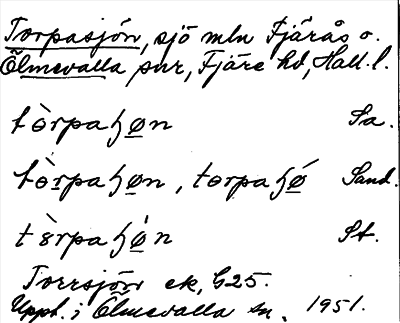 Torpasjön, sjö mln Fjärås o.
Ölmevalla snr, Fjäre hd, Hall. l.
tòrpaɧøn Sa.
tòrpaɧøn, torpaɧǿ Sand.
tòrpaɧøn St.
Torrsjön ek, G25.
Uppt. i Ölmevalla sn. 1951.